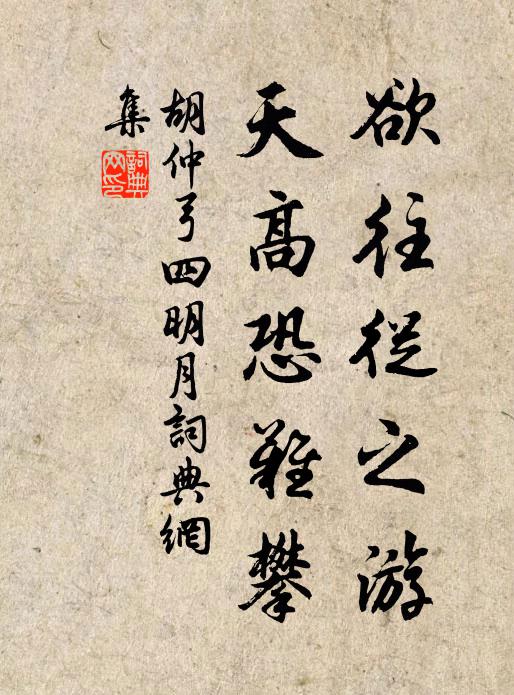 欲往從之游
天高恐難攀
胡仲弓四明月詞典網
集
詞典
网印